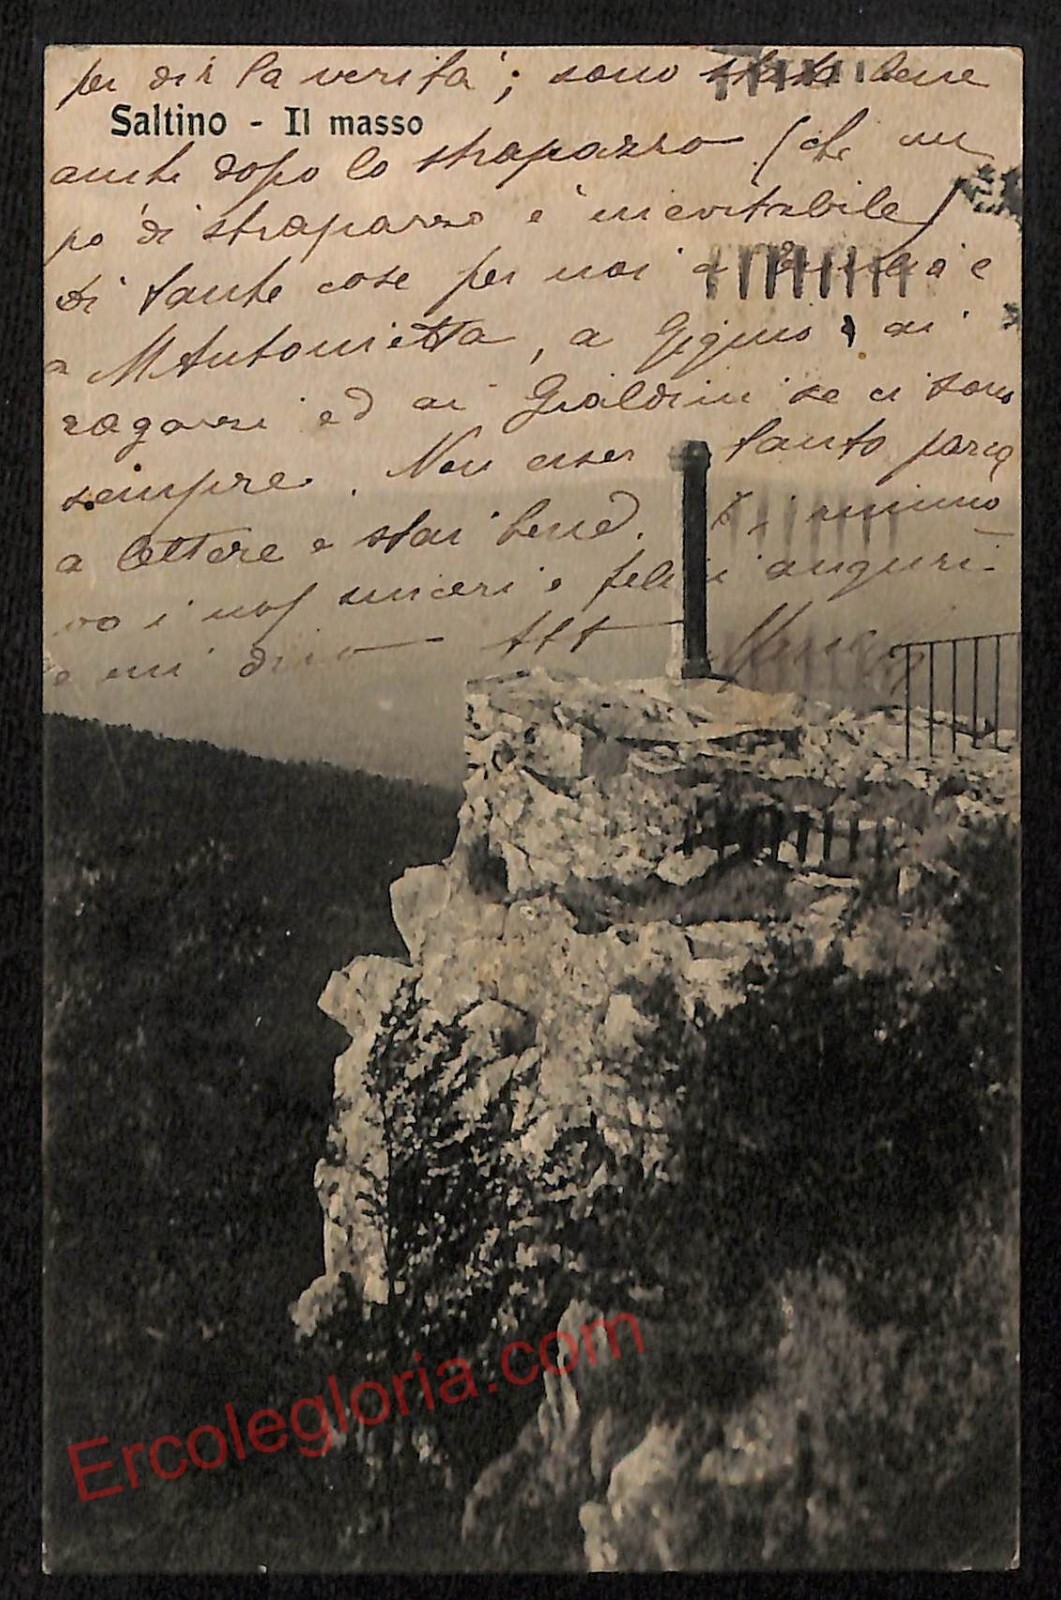 per dir la verità; sono stata bene
Saltino - Il masso
anche dopo lo strapazzo (che un
po' di strapazzo è inevitabile)
Di tante cose per noi a e
a M Antonietta, a Gigino ai
ragazzi ed ai Gialdini se ci sono
sempre. Non esser tanto parca
a lettere e stai bene. Ti rinno
vo i nos sinceri e felici auguri
e mi dico aff
Ercolegloria.com